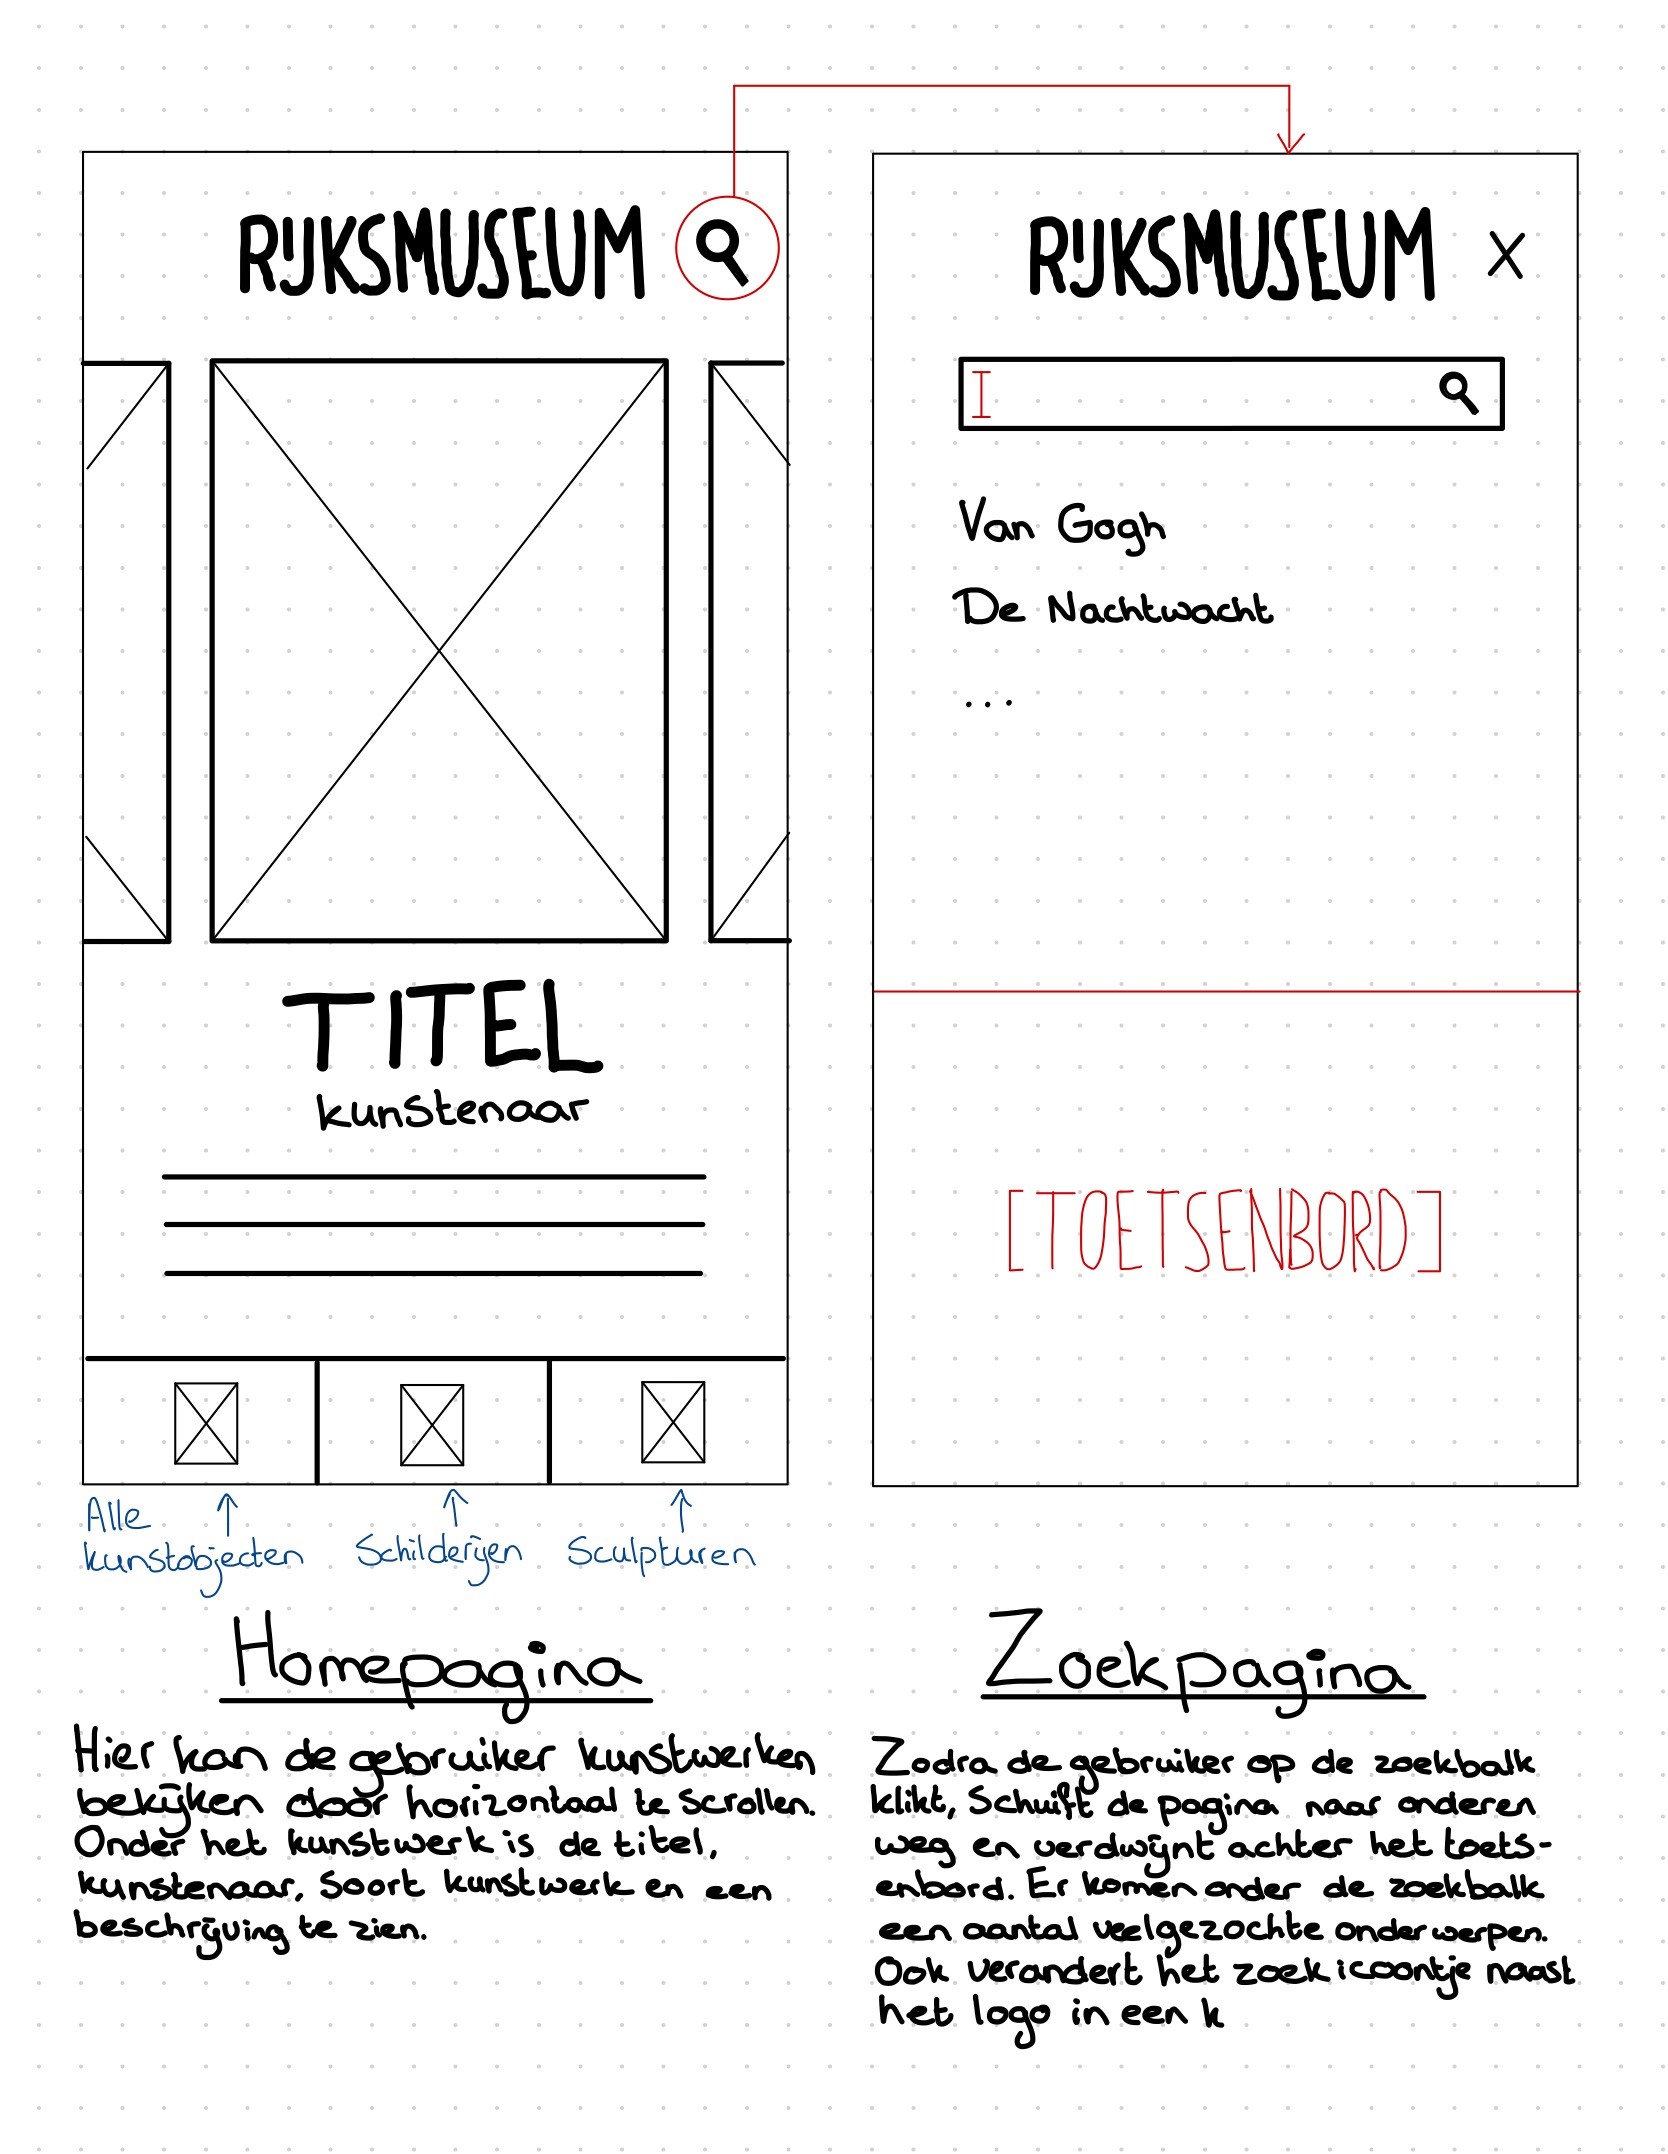 RIJKSMUSEUM
TITEL
kunstenaar
Alle
kunstobjecten
Schilderijen
Sculpturen
Homepagina
Hier kan de gebruiker kunstwerken
bekijken door horizontaal te scrollen.
Onder het kunstwerk is de titel,
kunstenaar, soort kunstwerk en een
beschrijving te zien.
RIJKSMUSEUM X
Van Gogh
De Nachtwacht
...
[TOETSENBORD]
Zoekpagina
Zodra de gebruiker op de zoekbalk
klikt, Schuift de pagina naar onderen
weg en verdwijnt achter het toets-
enbord. Er komen onder de zoekbalk
een aantal veelgezochte onderwerpen.
Ook verandert het zoekicoontje naast
het logo in een k